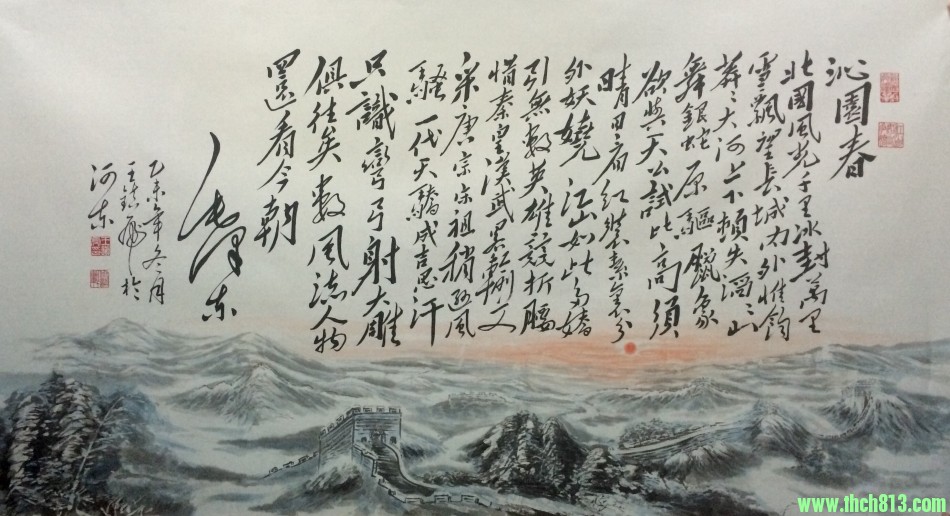 沁園春
北國風光千里冰封萬里
雪飄望長城內外惟餘
莽〻大河上下頓失滔〻山
舞銀蛇原驅臘象
欲與天公試比高須
晴日看紅裝素裹分
外妖嬈江山如此多嬌
引無數英雄競折腰
惜秦皇漢武略輸文
采唐宗宋祖稍遜風
騷一代天驕成吉思汗
只識彎弓射大雕
俱往矣數風流人物
還看今朝
毛澤東
乙未年冬月
王鎮飛於
河東
www.thch813.com